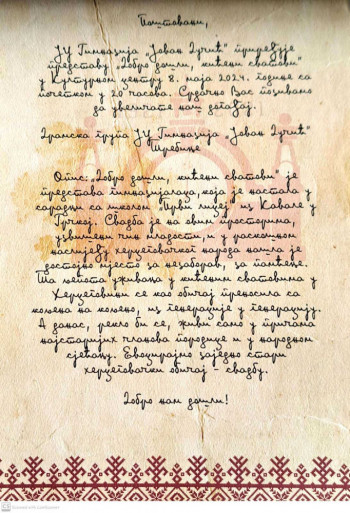 Поштовани,
ЈУ Гимназија „Јован Дучић" приређује
представу „Добро дошли, кићени сватови"
у Културном центру 8. маја 2024. године са
почетком у 20 часова. Срдачно Вас позивамо
да увеличате наш догађај.
Драмска група ЈУ Гимназија „Јован Дучић"
Требиње
Опис: „Добро дошли, кићени сватови" је
представа гимназијалаца, која је настала у
сарадњи са школом Први лицеј из Кавале у
Грчкој. Свадба је на овим просторима,
узвишени чин младости, и у раскошном
наслијеђу херцеговачког народа нашла је
достојно мјесто за незаборав, за памћење.
Та љепота уживања у кићеним сватовима у
Херцеговини се као обичај преносила са
кољена на кољено, из генерације у генерацију.
А данас, рекло би се, живи само у причама
најстаријих чланова породице и у народном
сјећању. Евоцирајмо заједно стари
херцеговачки обичај - свадбу.
Добро нам дошли!